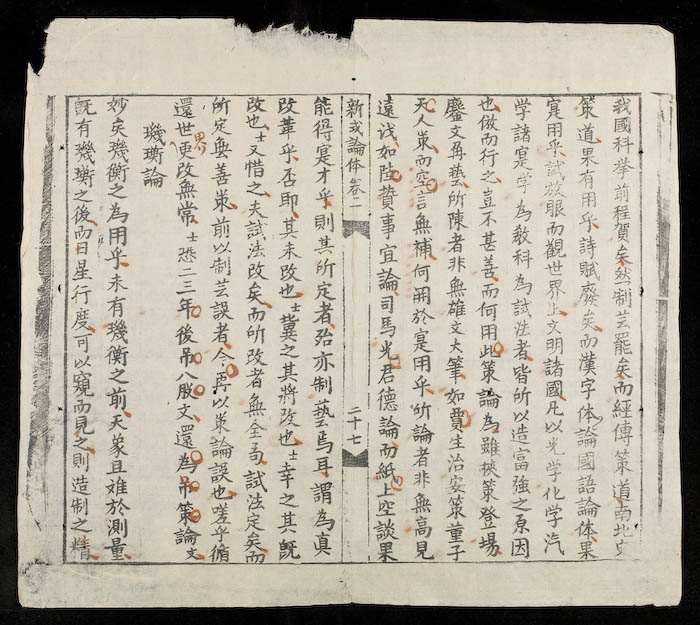 我國科举前程賀矣然制芸罷矣而經傳策道南北京
策道果有用乎詩賦廢矣而漢字体論國語論体果
寔用乎試放眼而觀世界上文明諸國凡以光学化学汽
学諸寔学為教科為試法者皆所以造富強之原因
也倣而行之豈不甚善而何用此策論為雖挾策登場
鏖文角藝所陳者非無雄文大筆如賈生治安策董子
天人策而空言無補何用於寔用乎所論者非無高見
遠識如陸贄事宜論司馬光君德論而紙上空談果
新式論体卷二
二十七
能得寔才乎則其所定者殆亦制藝焉耳謂為真
改革乎否即其未改也士冀之其將改也士幸之其既
改也士又惜之夫試法改矣而所改者無全局試法定矣而
所定無善策前以制芸誤者今再以策論誤也嗟乎循
還世界更改無常士恐二三年後吊八股文還為吊策論文
璣衡論
妙矣璣衡之為用乎未有璣衡之前天象且难於測量
既有璣衡之後而日星行度可以窺而見之則造制之精